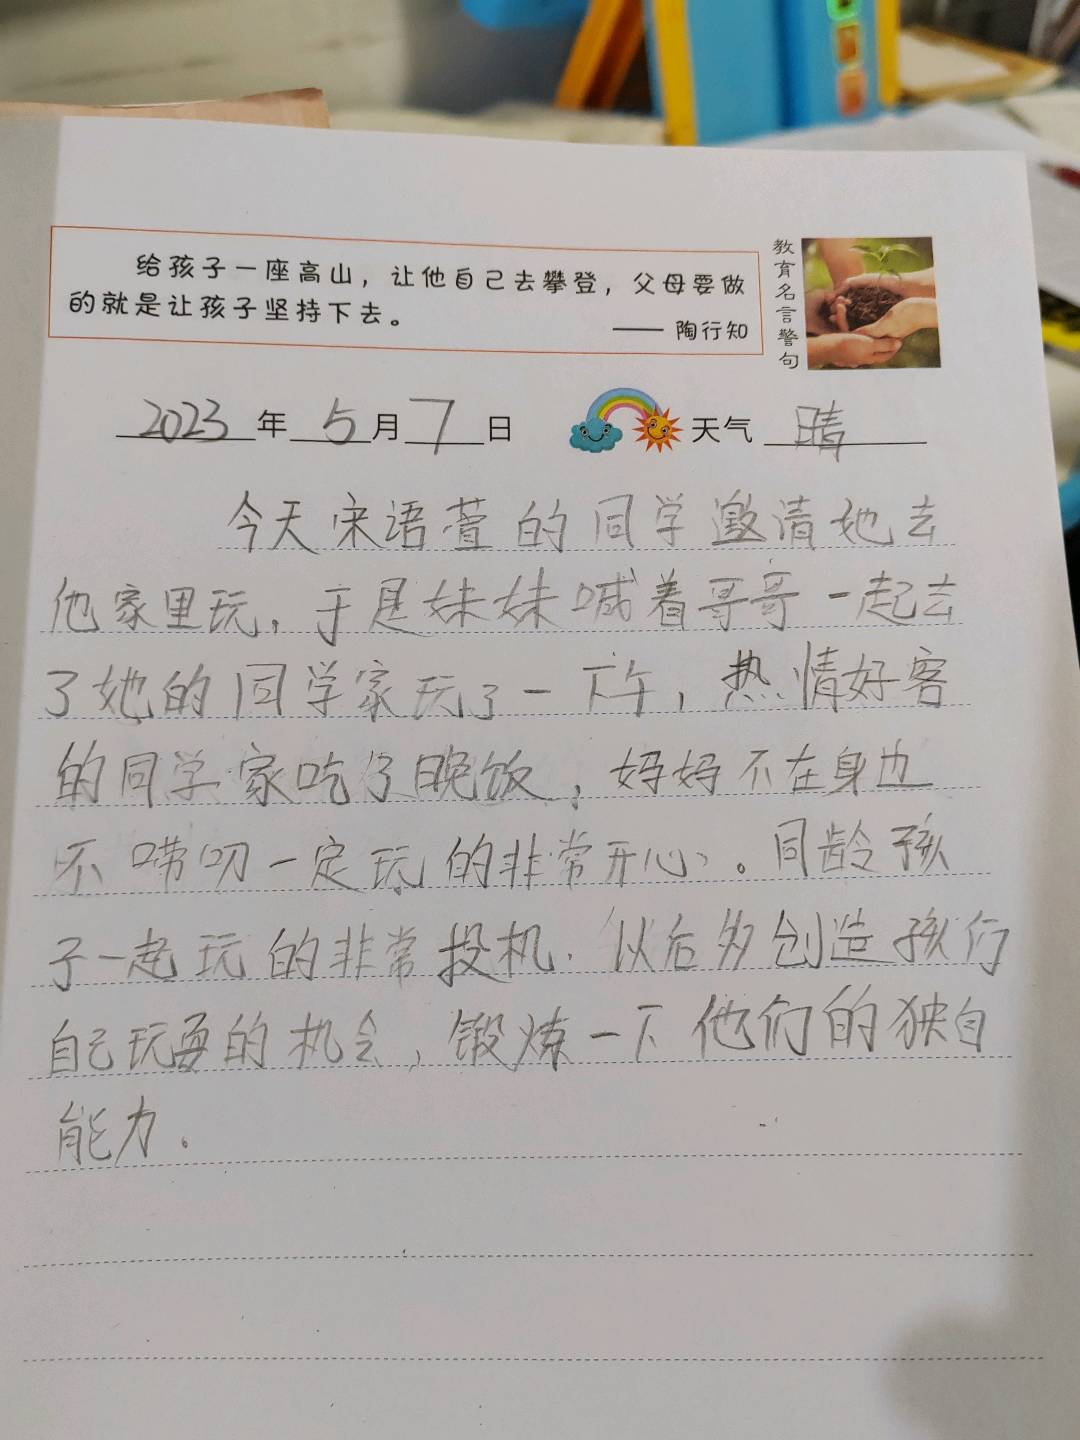 给孩子一座高山，让他自己去攀登，父母要做
的就是让孩子坚持下去。
—— 陶行知
教育名言警句
2023年5月7日 天气 晴
今天宋语萱的同学邀请她去
他家里玩，于是妹妹喊着哥哥一起去
了她的同学家玩了一下午，热情好客
的同学家吃了晚饭，妈妈不在身边
不唠叨一定玩的非常开心。同龄孩
子一起玩的非常投机．以后多创造孩们
自己玩耍的机会，锻炼一下他们的独自
能力．